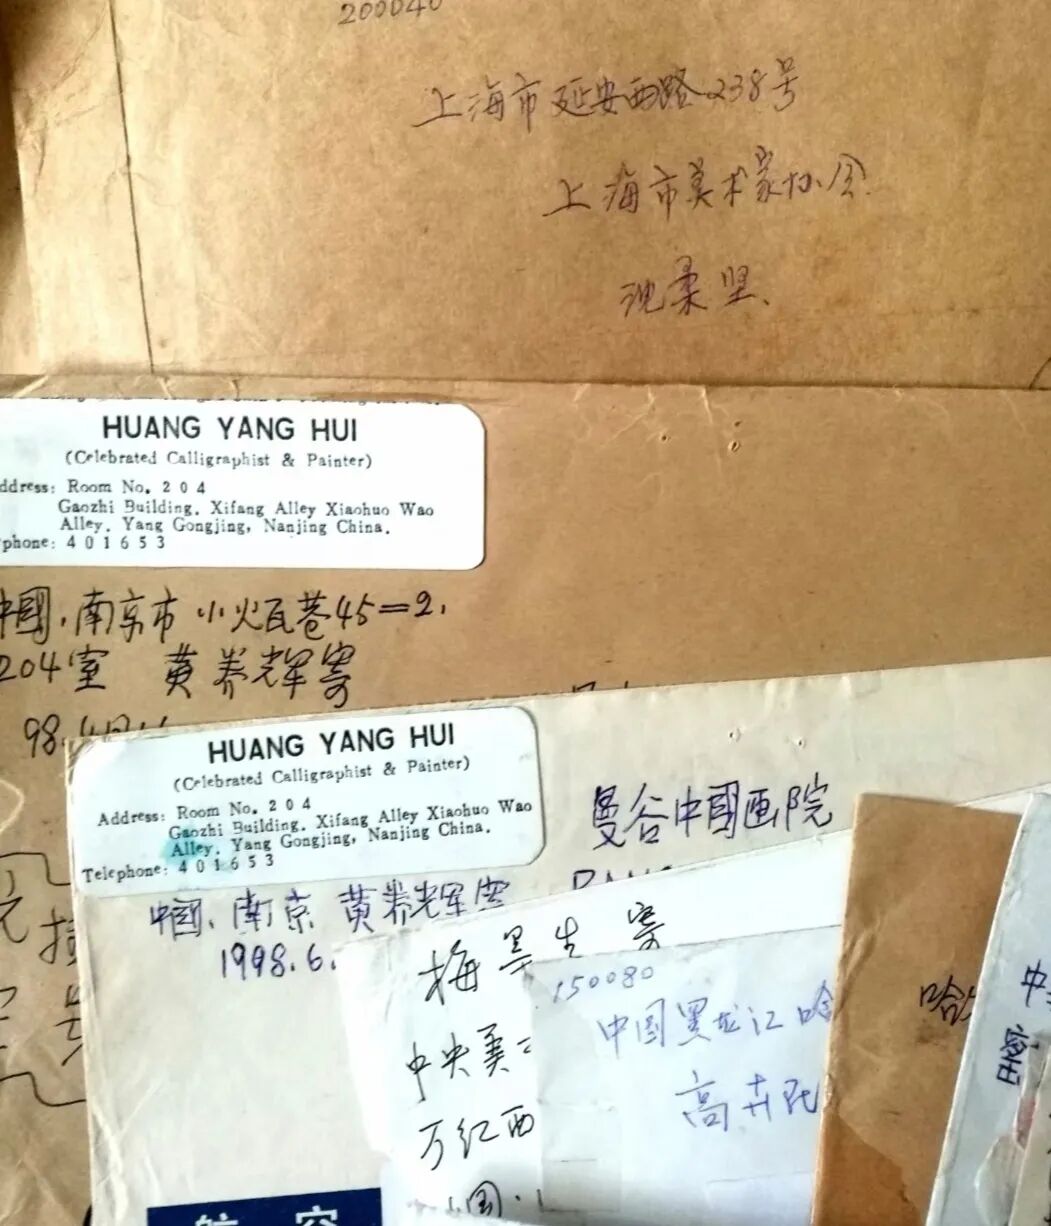 200040
上海市延安西路238号
上海市美术家协会
沈柔坚
HUANG YANG HUI
(Celebrated Calligraphist & Painter)
ddress: Room No. 2 0 4
Gaozhi Building. Xifang Alley Xiaohuo Wao
Alley. Yang Gongjing, Nanjing China.
phone: 4 0 1 6 5 3
中國.南京市小火瓦巷45=2.
204室 黄养辉寄
98.
HUANG YANG HUI
(Celebrated Calligraphist & Painter)
Address: Room No. 2 0 4
Gaozhi Building. Xifang Alley Xiaohuo Wao
Alley. Yang Gongjing, Nanjing China.
Telephone: 4 0 1 6 5 3
曼谷中國画院
中國.南京 黄养辉寄
1998.6.
梅墨生寄
中央美
万红西
国
150080
中国黑龙江哈
高卉
哈
航空